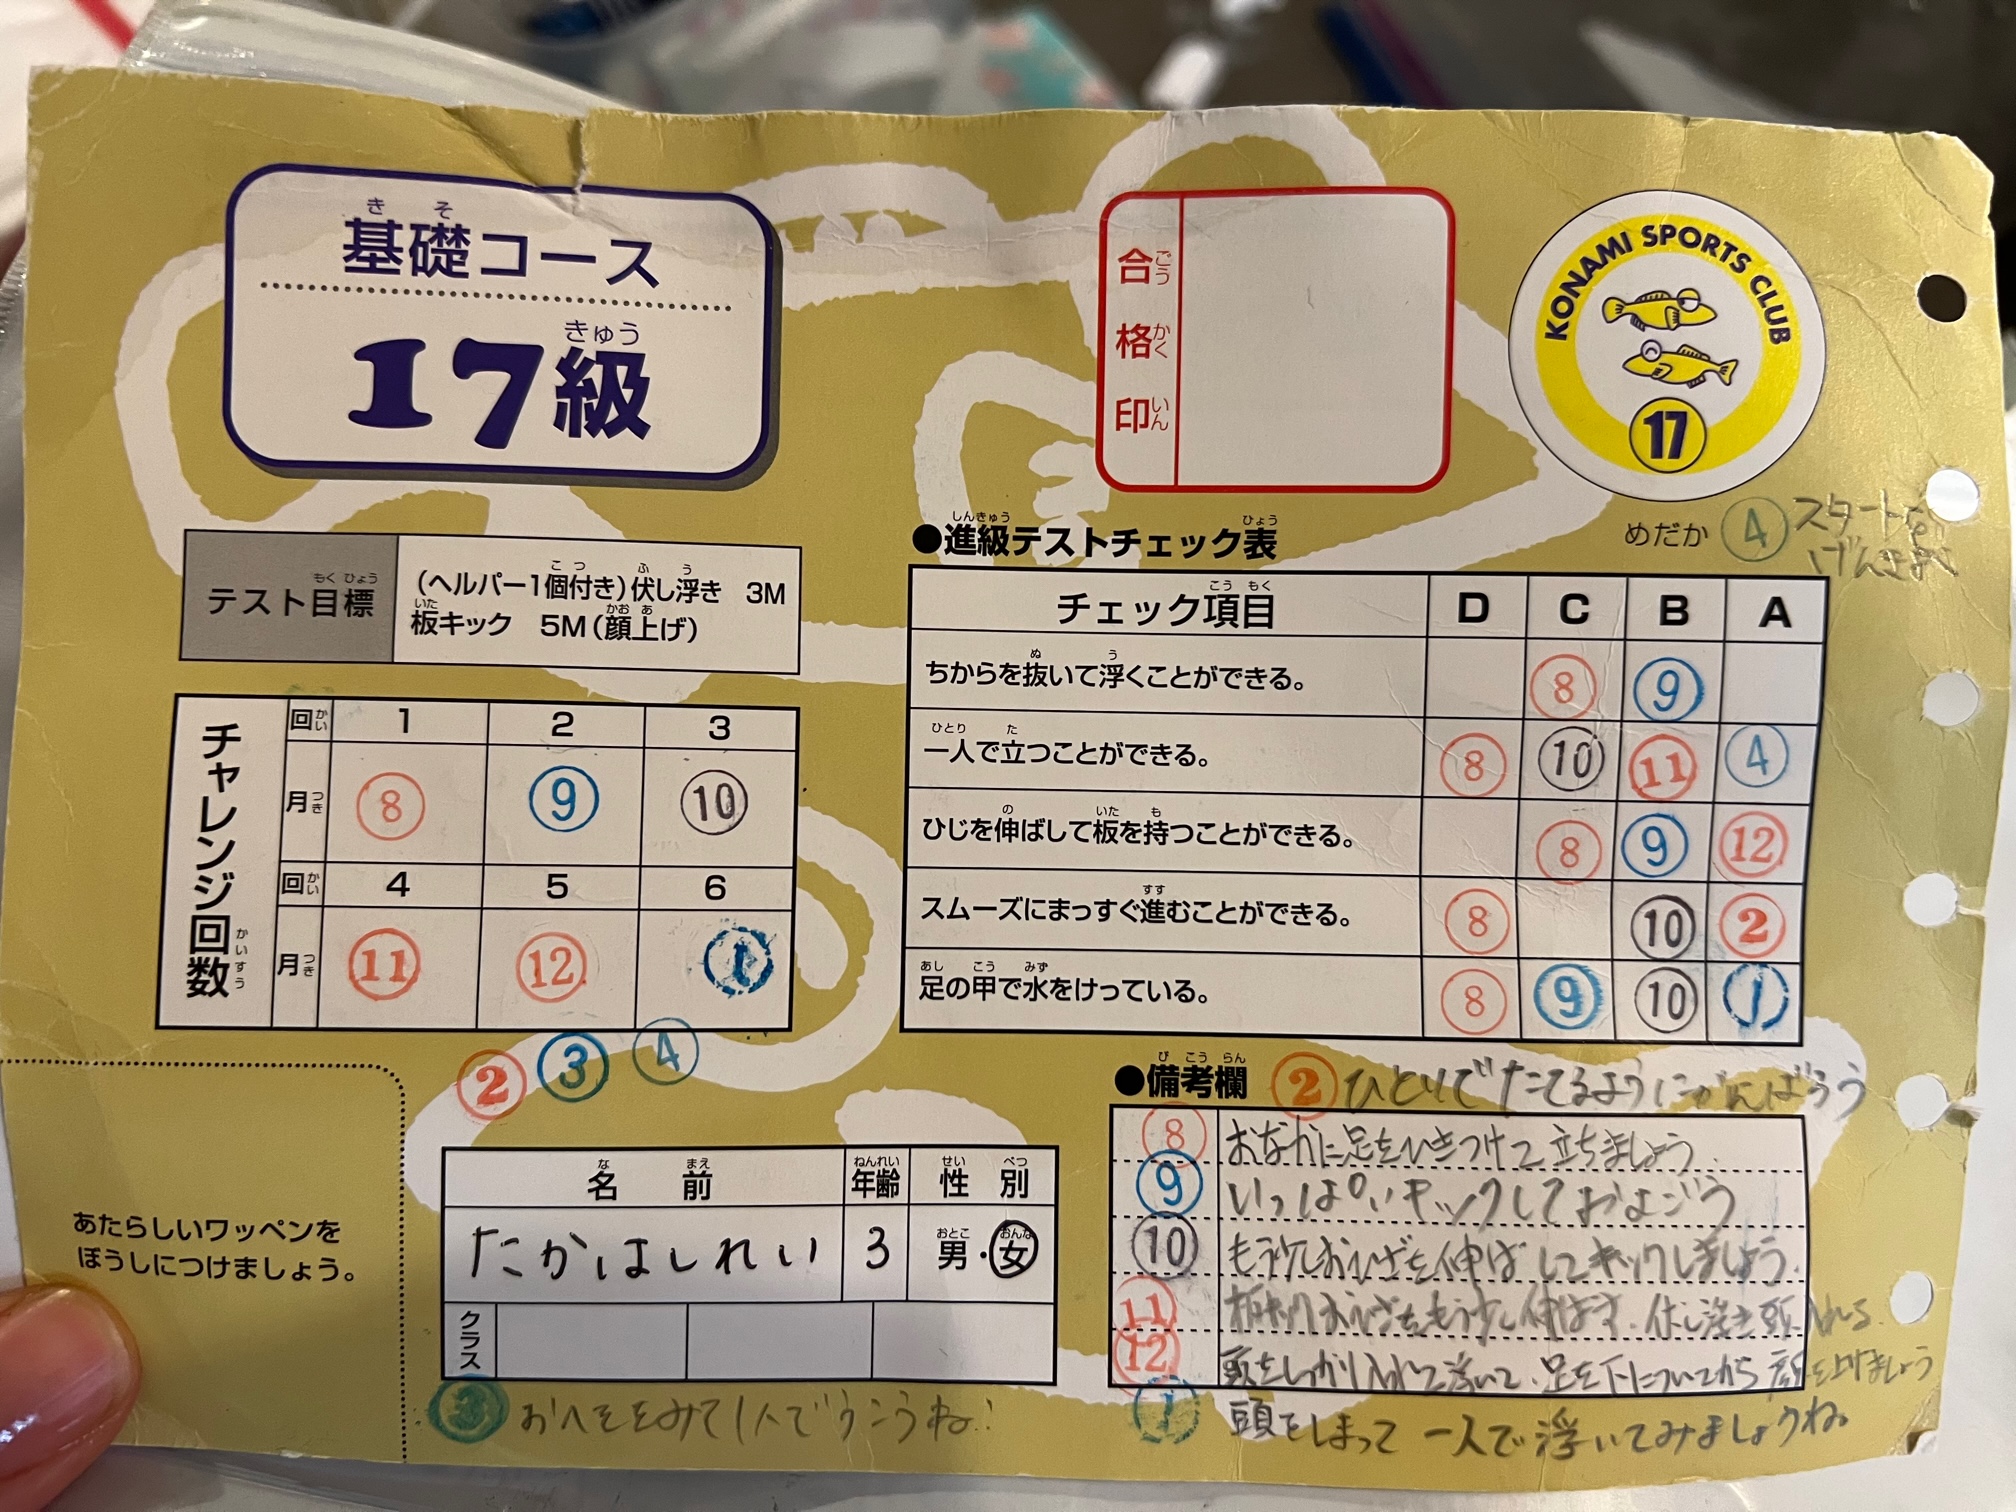 基礎コース
きそ
17級
きゅう
合格印
ごうかくいん
KONAMI SPORTS CLUB
17
テスト目標
もくひょう
(ヘルパー1個付き)伏し浮き 3M
板キック 5M(顔上げ)
チャレンジ回数
かいすう
回 1 2 3
月 ⑧ ⑨ ⑩
回 4 5 6
月 ⑪ ⑫ ①
② ③ ④
●進級テストチェック表
しんきゅう ひょう
めだか ④ スタートな
チェック項目 D C B A
ちからを抜いて浮くことができる。 ⑧ ⑨
一人で立つことができる。 ⑧ ⑩ ⑪ ④
ひじを伸ばして板を持つことができる。 ⑧ ⑨ ⑫
スムーズにまっすぐ進むことができる。 ⑧ ⑩ ②
足の甲で水をけっている。 ⑧ ⑨ ⑩ ①
●備考欄 ② ひとりでたてるようにがんばろう
びこうらん
⑧ おなかに足をひきつけて立ちましょう.
⑨ いっぱいキックしておよごう
⑩ もう少しおひざを伸ばしてキックしましょう.
⑪ 板キックおひざをもう少し伸ばす. 伏し浮き頭入れる.
⑫ 頭をしっかり入れて浮いて、足を下についてから顔を上げましょう
① 頭をしまって一人で浮いてみましょうね。
名前 年齢 性別
なまえ ねんれい せいべつ
たかはしれい 3 男・女
おとこ おんな
クラス
③ おへそをみて1人でうこうね!
あたらしいワッペンを
ぼうしにつけましょう。